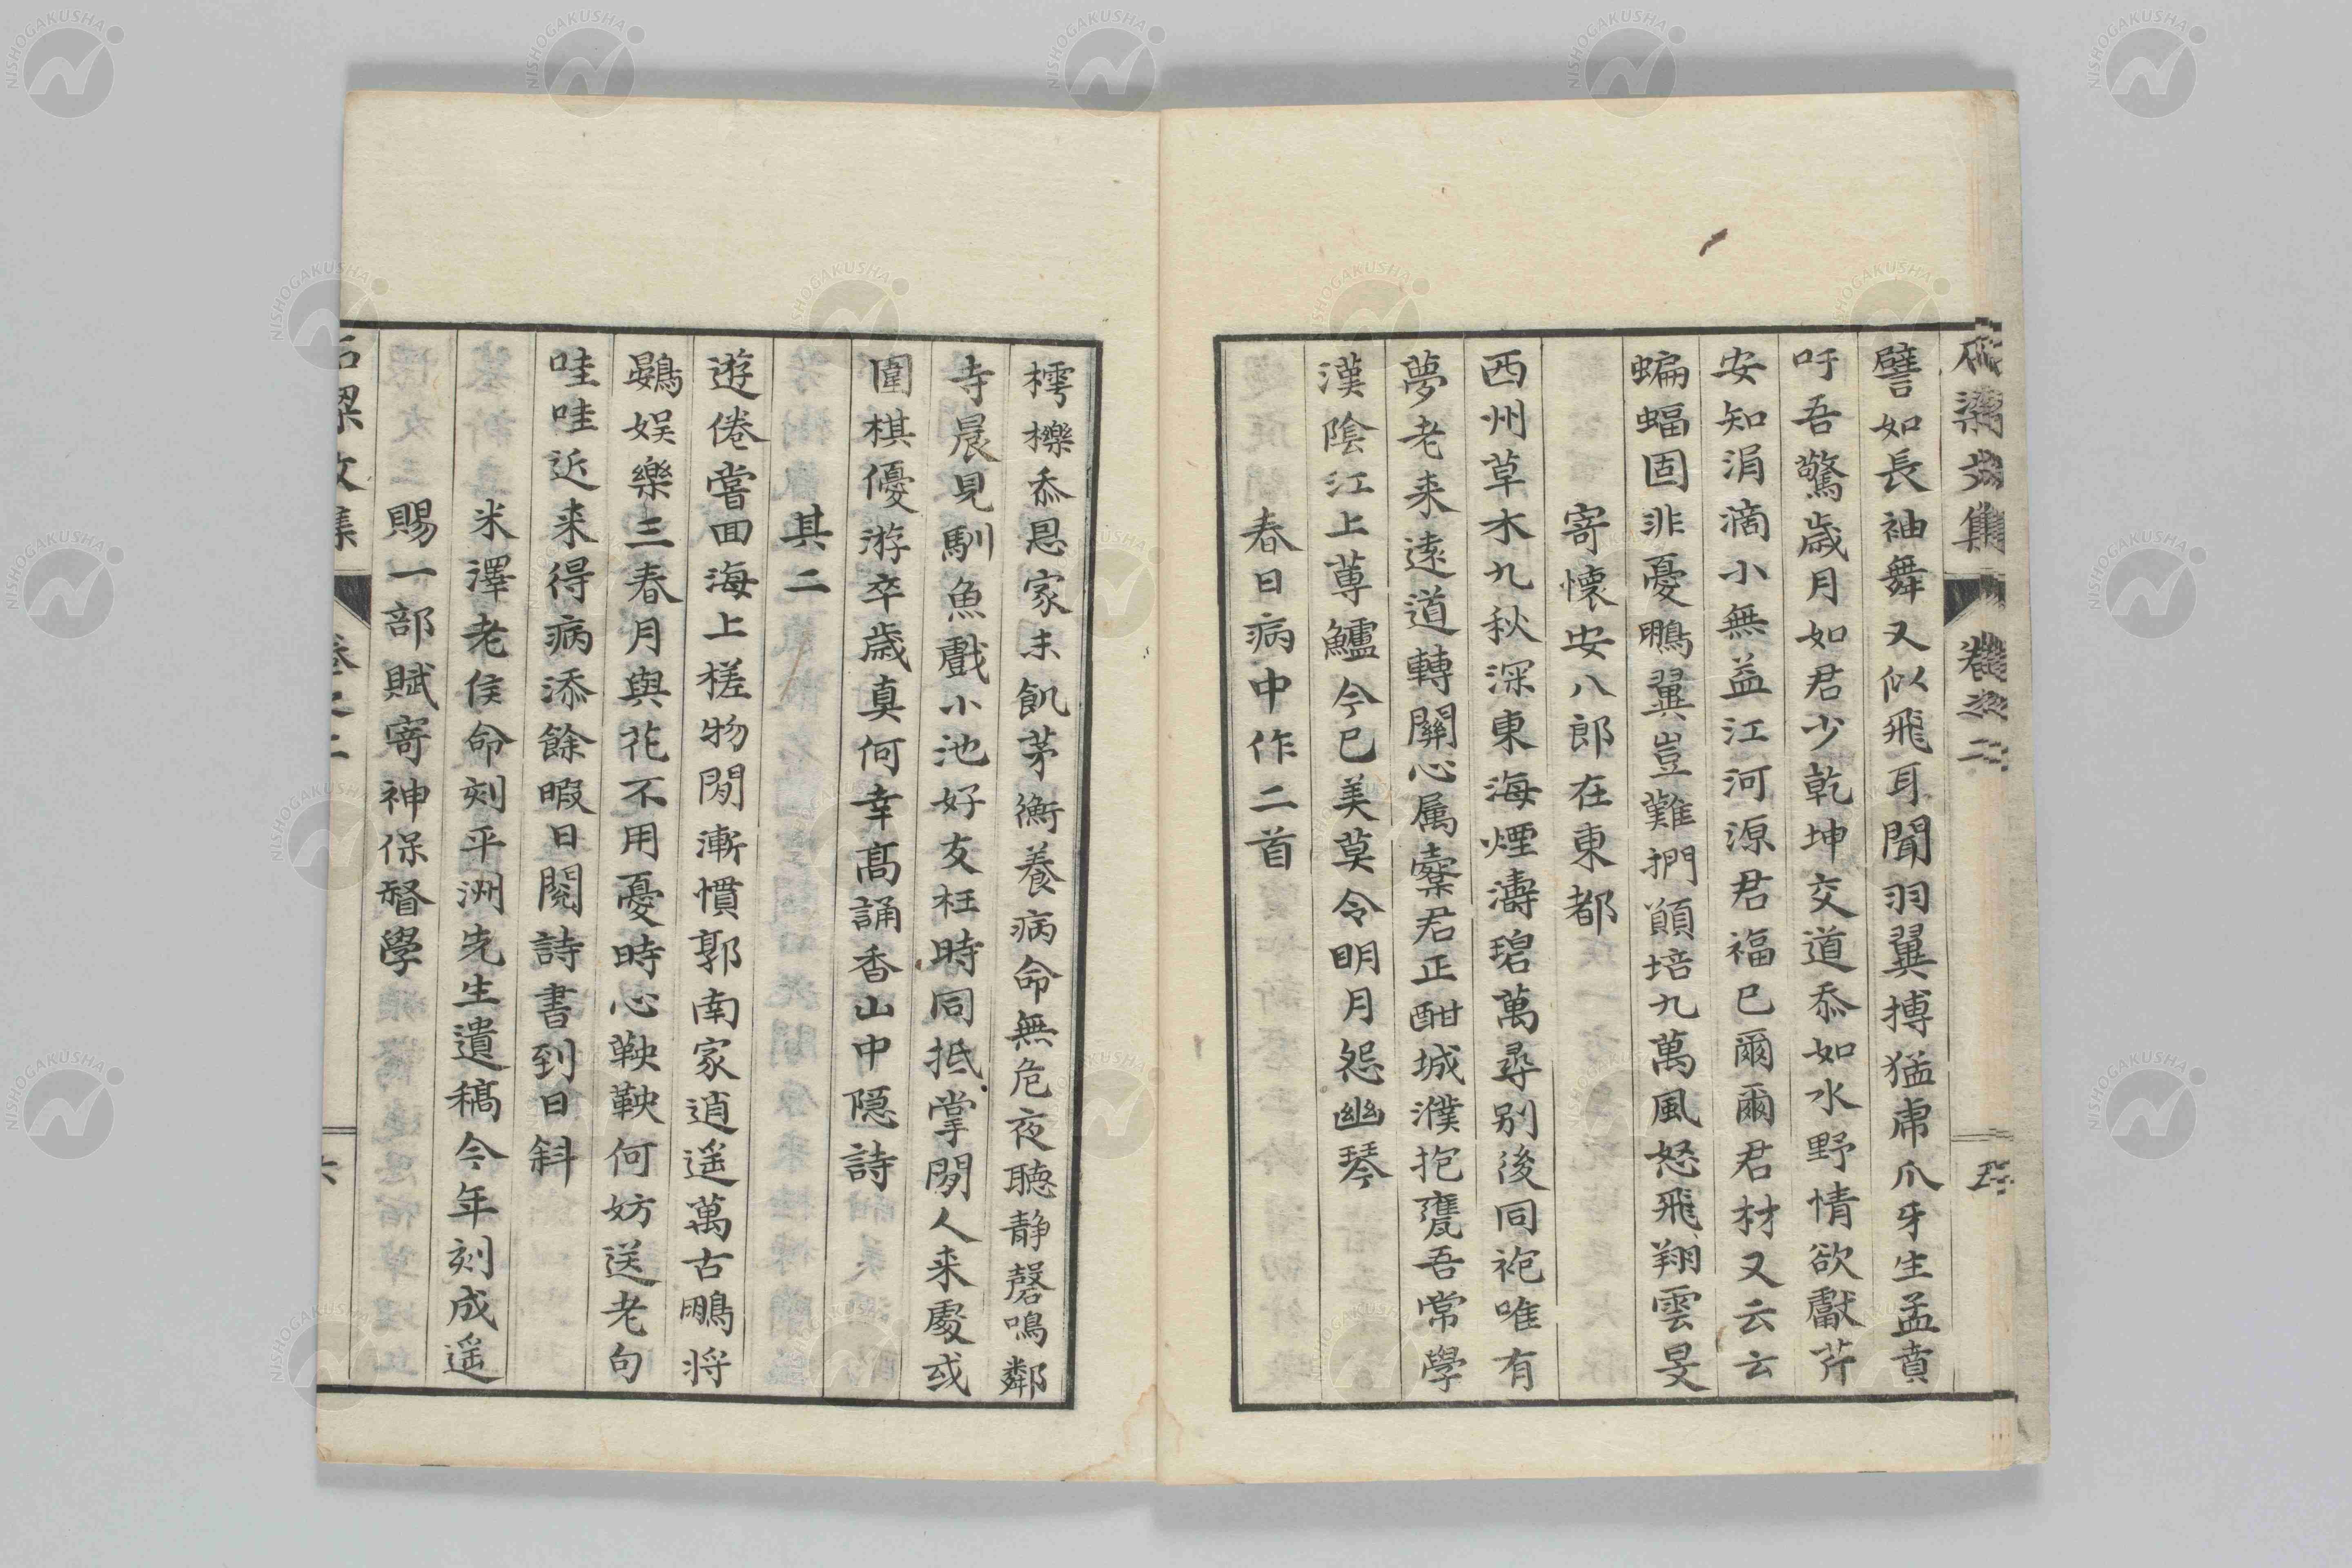 石梁文集
卷之二
五
譬如長袖舞又似飛耳聞羽翼搏猛虎爪牙生孟賁
吁吾驚歲月如君少乾坤交道忝如水野情欲獻芹
安知涓滴小無益江河源君福已爾爾君材又云云
蝙蝠固非憂鵬翼豈難捫顚培九萬風怒飛翔雲旻
寄懷安八郎在東都
西州草木九秋深東海煙濤碧萬尋別後同袍唯有
夢老来遠道轉關心属櫜君正酣城濮抱甕吾常學
漢陰江上蓴鱸今已美莫令明月怨幽琴
春日病中作二首
樗櫟忝恩家未飢茅衡養病命無危夜聽静磬鳴鄰
寺晨見馴魚戲小池好友枉時同抵掌閒人来處或
圍棋優游卒歲真何幸髙誦香山中隠詩
其二
遊倦嘗田海上槎物閒漸慣郭南家逍遥萬古鵬将
鷃娯樂三春月與花不用憂時心鞅鞅何妨送老句
哇哇近来得病添餘暇日閱詩書到日斜
米澤老侯命刻平洲先生遺稿今年刻成遥
賜一部賦寄神保督學
石梁文集
卷之二
六
NISHOGAKUSHA